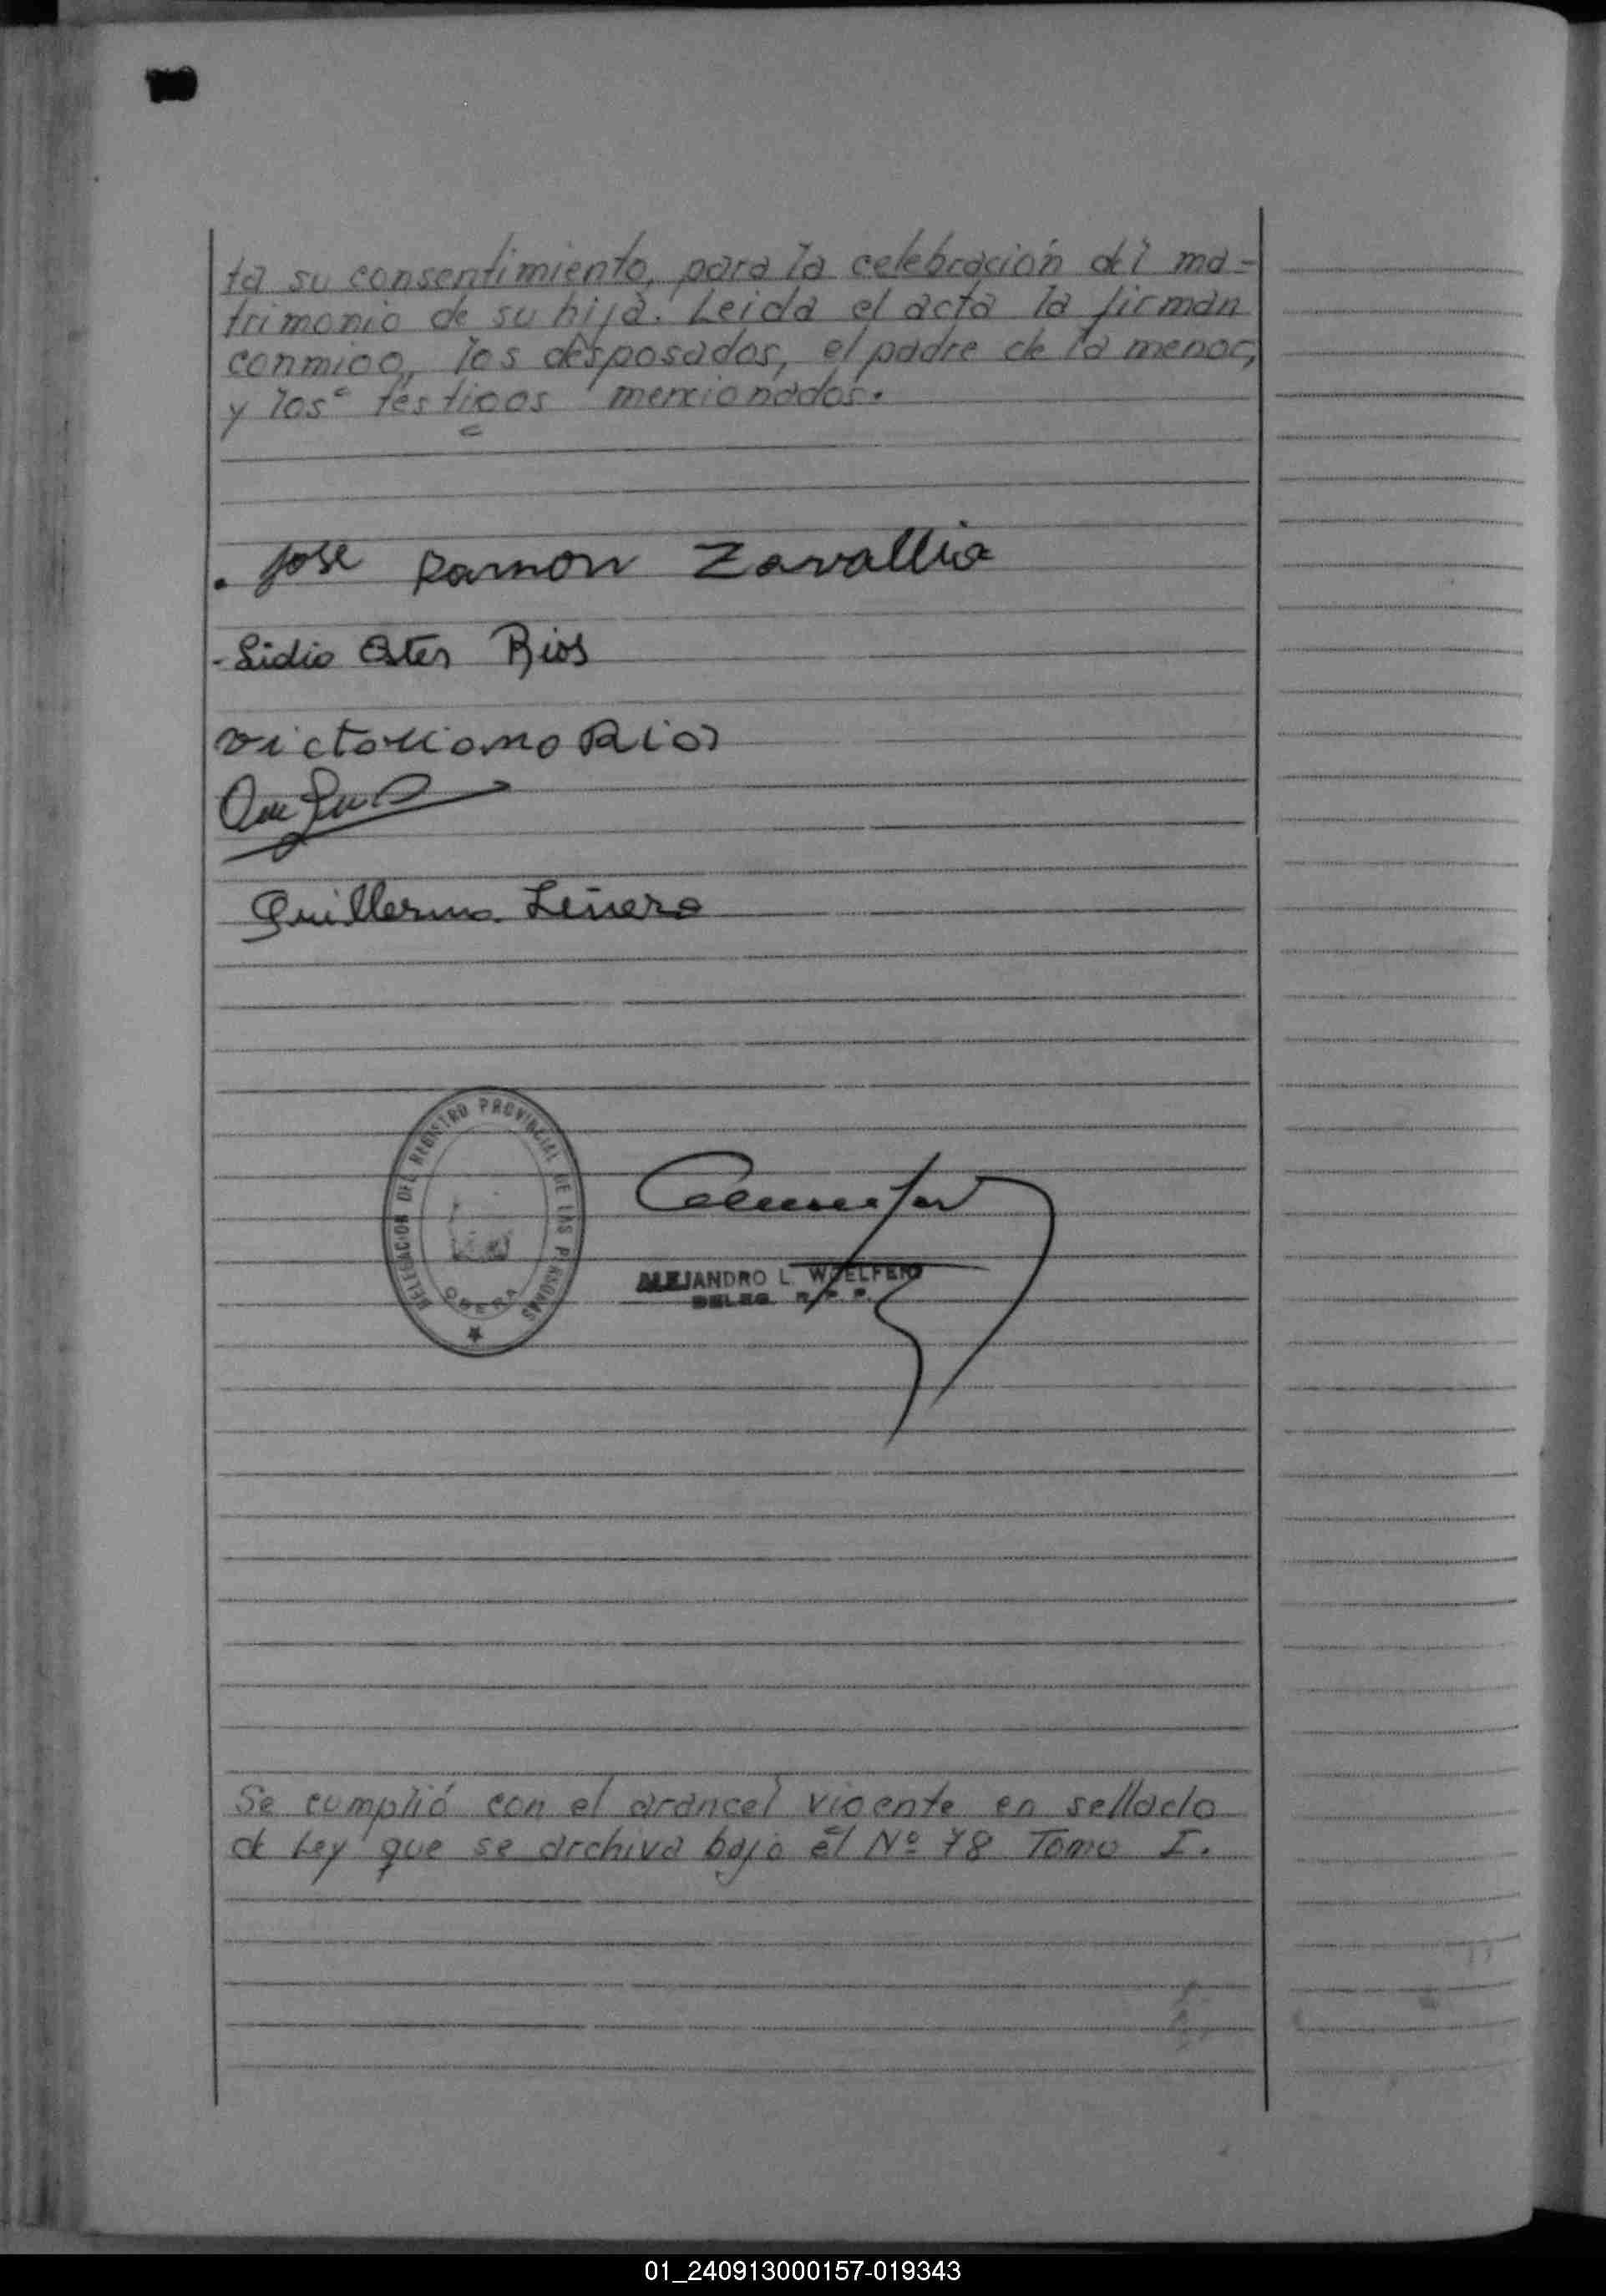 ta su consentimiento, para la celebración del ma-
trimonio de su hija. Leida el acta la firman
conmigo, los desposados, el padre de la menor,
y los testigos mencionados.
. Jose Ramon Zavallia
- Lidia Ester Rios
Victoriano Rios
Guillermo
DELEGACION DEL REGISTRO PROVINCIAL DE LAS PERSONAS
OBERA
ALEJANDRO L. WOELFERT
DELEG. R. P. P.
Se cumplió con el arancel vigente en sellado
de Ley que se archiva bajo el Nº 78 Tomo I.
01_240913000157-019343